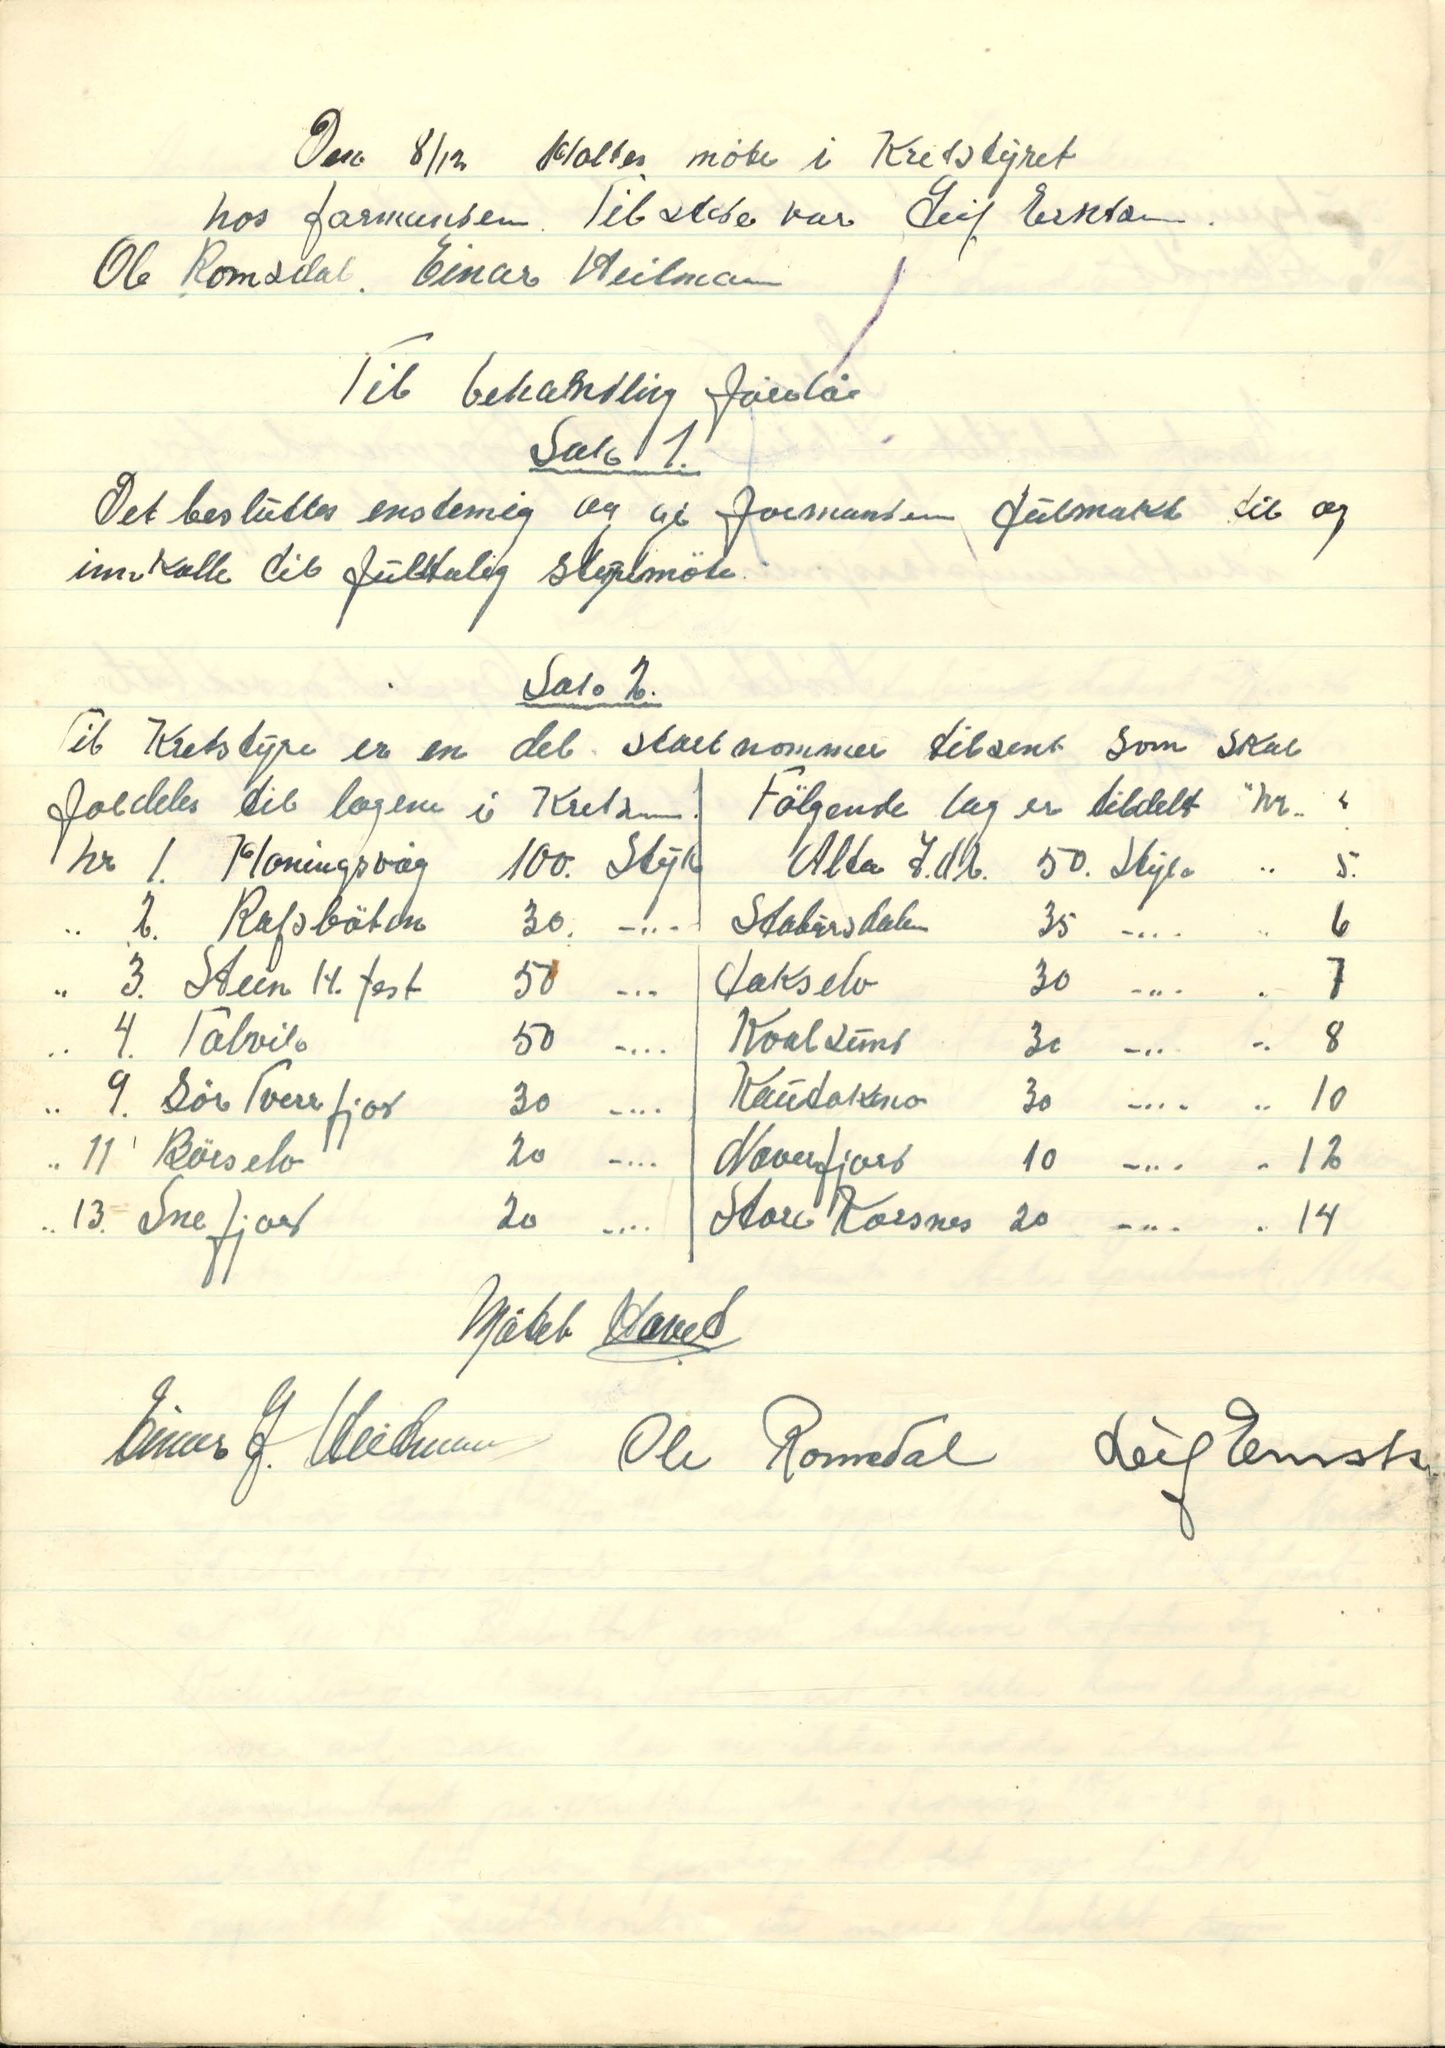 Den 8/12 Holtes möte i Kretstyret
hos formanden. Til stede var Leif
Ole Romsdal. Einar Heilmann
Til behandling forelåe
Sak 1.
Det besluttes enstemig og gi formanden fulmakt til og
innkalle til fulltalig styremöte.
Sak 2.
Til Kretstyre er en del startnommer tilsent som skal
fordeles til lagene i Kretsen. Fölgende lag er tildelt "nr. "
Nr 1. Honingsvåg 100. Styk Alta I.d.l. 50. Styk " 5.
" 2. Rafsbötn 30. -"- Stabursdalen 35 -"- " 6
" 3. Stein H.fest 50 -"- Lakselv 30 -"- " 7
" 4. Talvik 50 -"- Kvalsund 30 -"- " 8
" 9. Sör Tverrfjord 30 -"- Kautokeno 30 -"- " 10
" 11 Börselv 20 -"- Naverfjord 10 -"- " 12
" 13. Snefjord 20 -"- Store Korsnes 20 -"- " 14
Mötet Hevet
Einar J. Heilmann Ole Romsdal Leif